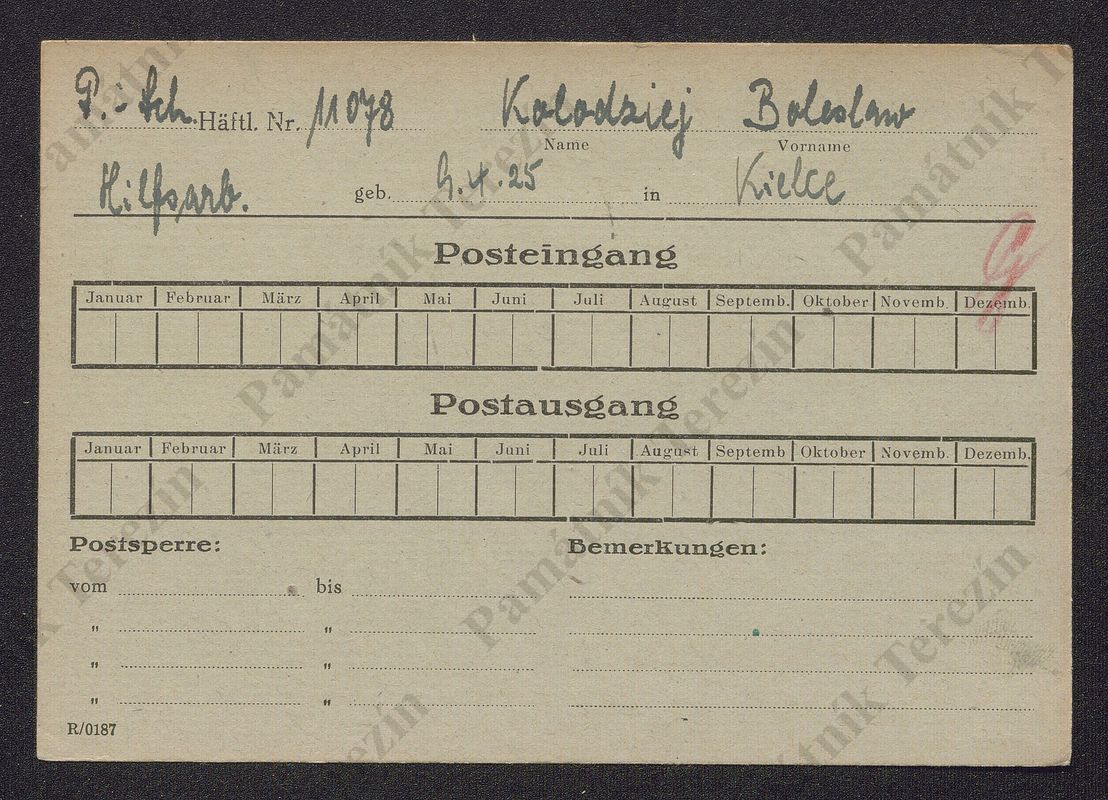 P.-Sch. Häftl. Nr. 11078 Kolodziej Boleslaw
Name Vorname
Hilfsarb. geb. 9.4.25 in Kielce
Posteingang
Januar Februar März April Mai Juni Juli August Septemb. Oktober Novemb. Dezemb.
Postausgang
Januar Februar März April Mai Juni Juli August Septemb Oktober Novemb. Dezemb.
Postsperre: Bemerkungen:
vom bis
" "
" "
" "
R/0187
Památník Terezín